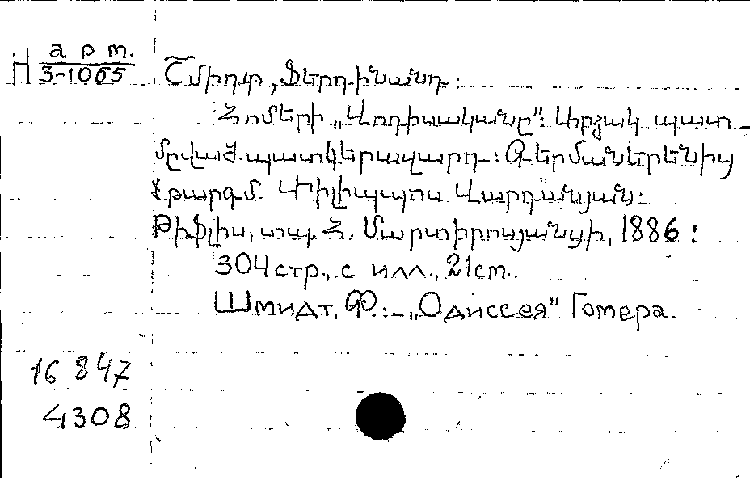 Н арт.
3-1065
Շմիդտ, Ֆերդինանդ:
Հոմերի „Վոդիսականը": Արձակ պատ-
մըված. պատկերազարդ: Գերմաներենից
է թարգմ. Փիլիպպոս Վարդանյան:
Թիֆլիս, տպ. Հ. Մարտիրոսյանցի, 1886:
304 стр., с илл., 21 cm.
Шмидт, Ф. — „Одиссея" Гомера.
16 847
4308